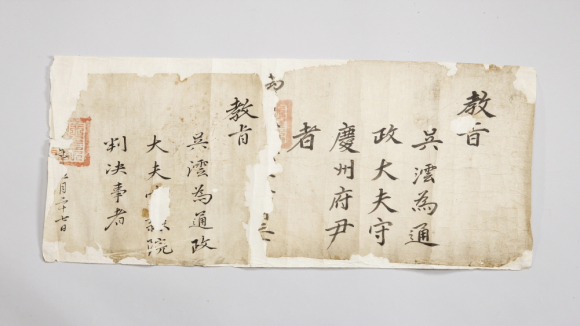 教旨
吳澐為通
政大夫守
慶州府尹
者
教旨
吳澐為通政
大夫 院
判決事者
月二十七日